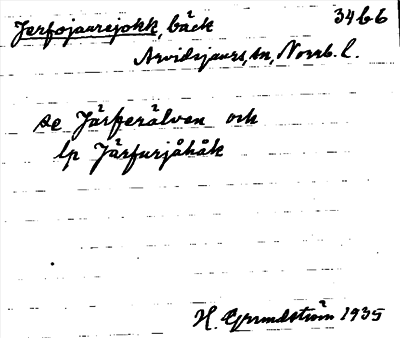 Jerfojaurejokk, bäck 34b6
Arvidsjaurs, sn, Norrb. l.
se Järfverälven och
lp Järfurjåhåk
H. Grundström 1935